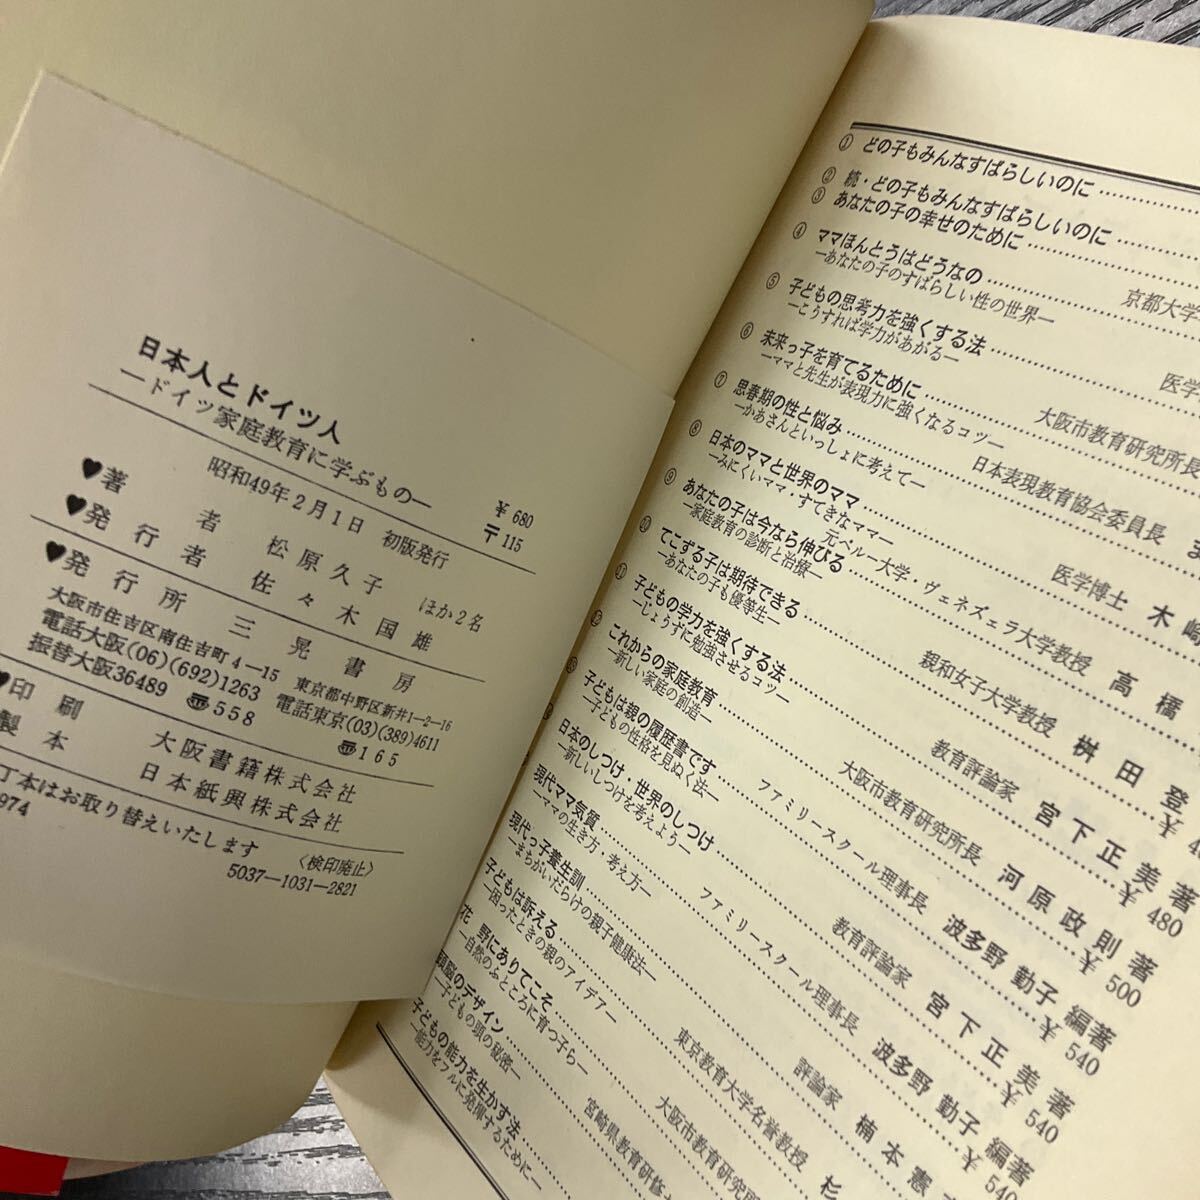 日本人とドイツ人
―ドイツ家庭教育に学ぶもの―
¥680
〒115
昭和49年2月1日 初版発行
♥著者 松原久子 ほか2名
♥発行者 佐々木国雄
♥発行所 三晃書房
大阪市住吉区南住吉町4-15
電話大阪(06)(692)1263
振替大阪36489 〠558
東京都中野区新井1-2-16
電話東京(03)(389)4611
〠165
♥印刷 大阪書籍株式会社
製本 日本紙興株式会社
丁本はお取り替えいたします
974
〈検印廃止〉
5037-1031-2821
① どの子もみんなすばらしいのに
② 続・どの子もみんなすばらしいのに
③ あなたの子の幸せのために
④ ママほんとうはどうなの 京都大学
―あなたの子のすばらしい性の世界―
⑤ 子どもの思考力を強くする法 医学
―こうすれば学力があがる―
⑥ 未来っ子を育てるために 大阪市教育研究所長
―ママと先生が表現力に強くなるコツ―
⑦ 思春期の性と悩み 日本表現教育協会委員長
―かあさんといっしょに考えて―
⑧ 日本のママと世界のママ 医学博士 木崎
―みにくいママ・すてきなママ―
元ペルー大学・ヴェネズェラ大学教授 高橋
⑨ あなたの子は今なら伸びる
―家庭教育の診断と治療―
親和女子大学教授 桝田登
⑩ てこずる子は期待できる
―あなたの子も優等生―
教育評論家 宮下正美著
⑪ 子どもの学力を強くする法
―じょうずに勉強させるコツ―
大阪市教育研究所長 河原政則著
¥480
⑫ これからの家庭教育
―新しい家庭の創造―
ファミリースクール理事長 波多野勤子編著
¥500
⑬ 子どもは親の履歴書です
―子どもの性格を見ぬく法―
教育評論家 宮下正美著
¥540
日本のしつけ・世界のしつけ
―新しいしつけを考えよう―
ファミリースクール理事長 波多野勤子編著
¥540
現代ママ気質
―ママの生き方・考え方―
評論家 楠本憲
現代っ子養生訓
―まちがいだらけの親子健康法―
東京教育大学名誉教授 杉
子どもは訴える
―困ったときの親のアイデア―
大阪市教育研究
花 野にありてこそ
―自然のふところに育つ子ら―
宮崎県教育研修
頭脳のデザイン
―子どもの頭の秘密―
子どもの能力を生かす法
―能力をフルに発揮するために―